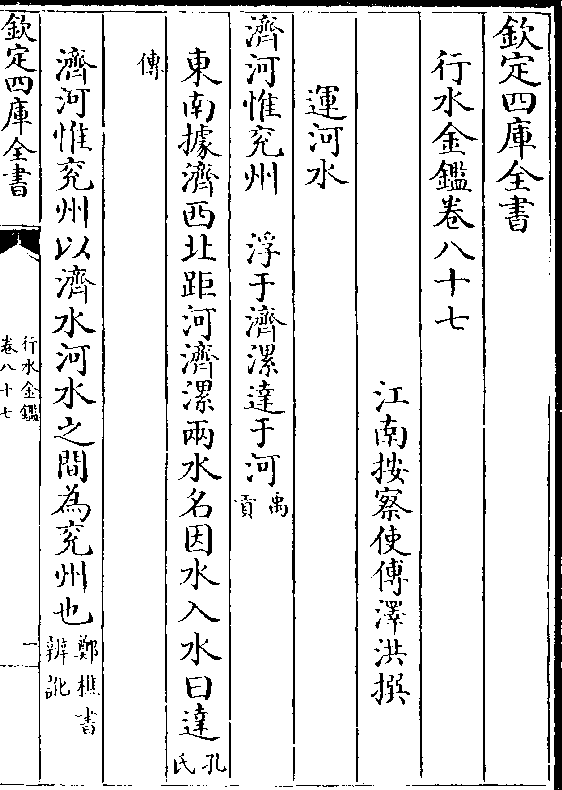 欽定四庫全書
行水金鑑卷八十七
江南按察使傅澤洪撰
運河水
濟河惟兖州　浮于濟漯達于河禹貢
東南據濟西北距河濟漯兩水名因水入水曰達孔氏
傳
濟河惟兖州以濟水河水之間為兖州也鄭樵書辨訛
欽定四庫全書
行水金鑑
卷八十七
一